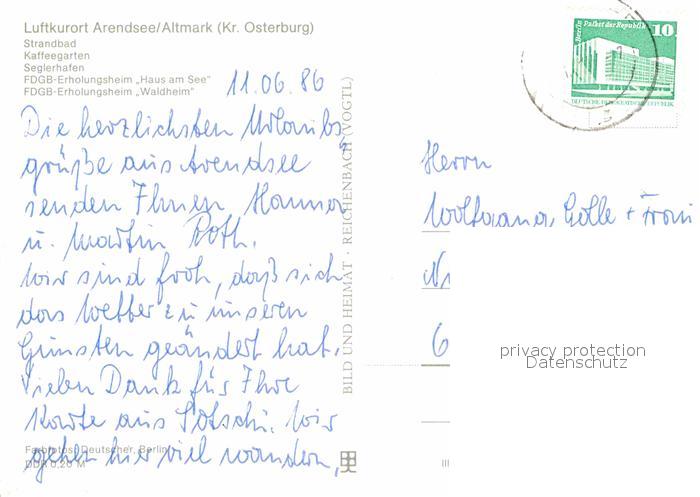 Luftkurort Arendsee/Altmark (Kr. Osterburg)
Strandbad
Kaffeegarten
Seglerhafen
FDGB-Erholungsheim „Haus am See"
FDGB-Erholungsheim „Waldheim"
11.06.86
Die herzlichsten Urlaubs-
grüße aus Arendsee
senden Ihnen, Hanna
u. Martin Roth.
Wir sind froh, daß sich
das Wetter zu unseren
Gunsten geändert hat.
Vielen Dank für Ihre
Karte aus Sotschi. Wir
gehen hier viel wandern,
Farbfotos: Deutscher, Berlin
DDR 0,20 M
BILD UND HEIMAT · REICHENBACH (VOGTL)
III
Berlin Palast der Republik 10
DEUTSCHE DEMOKRATISCHE REPUBLIK
Herrn
Golle + Frau
6
privacy protection
Datenschutz